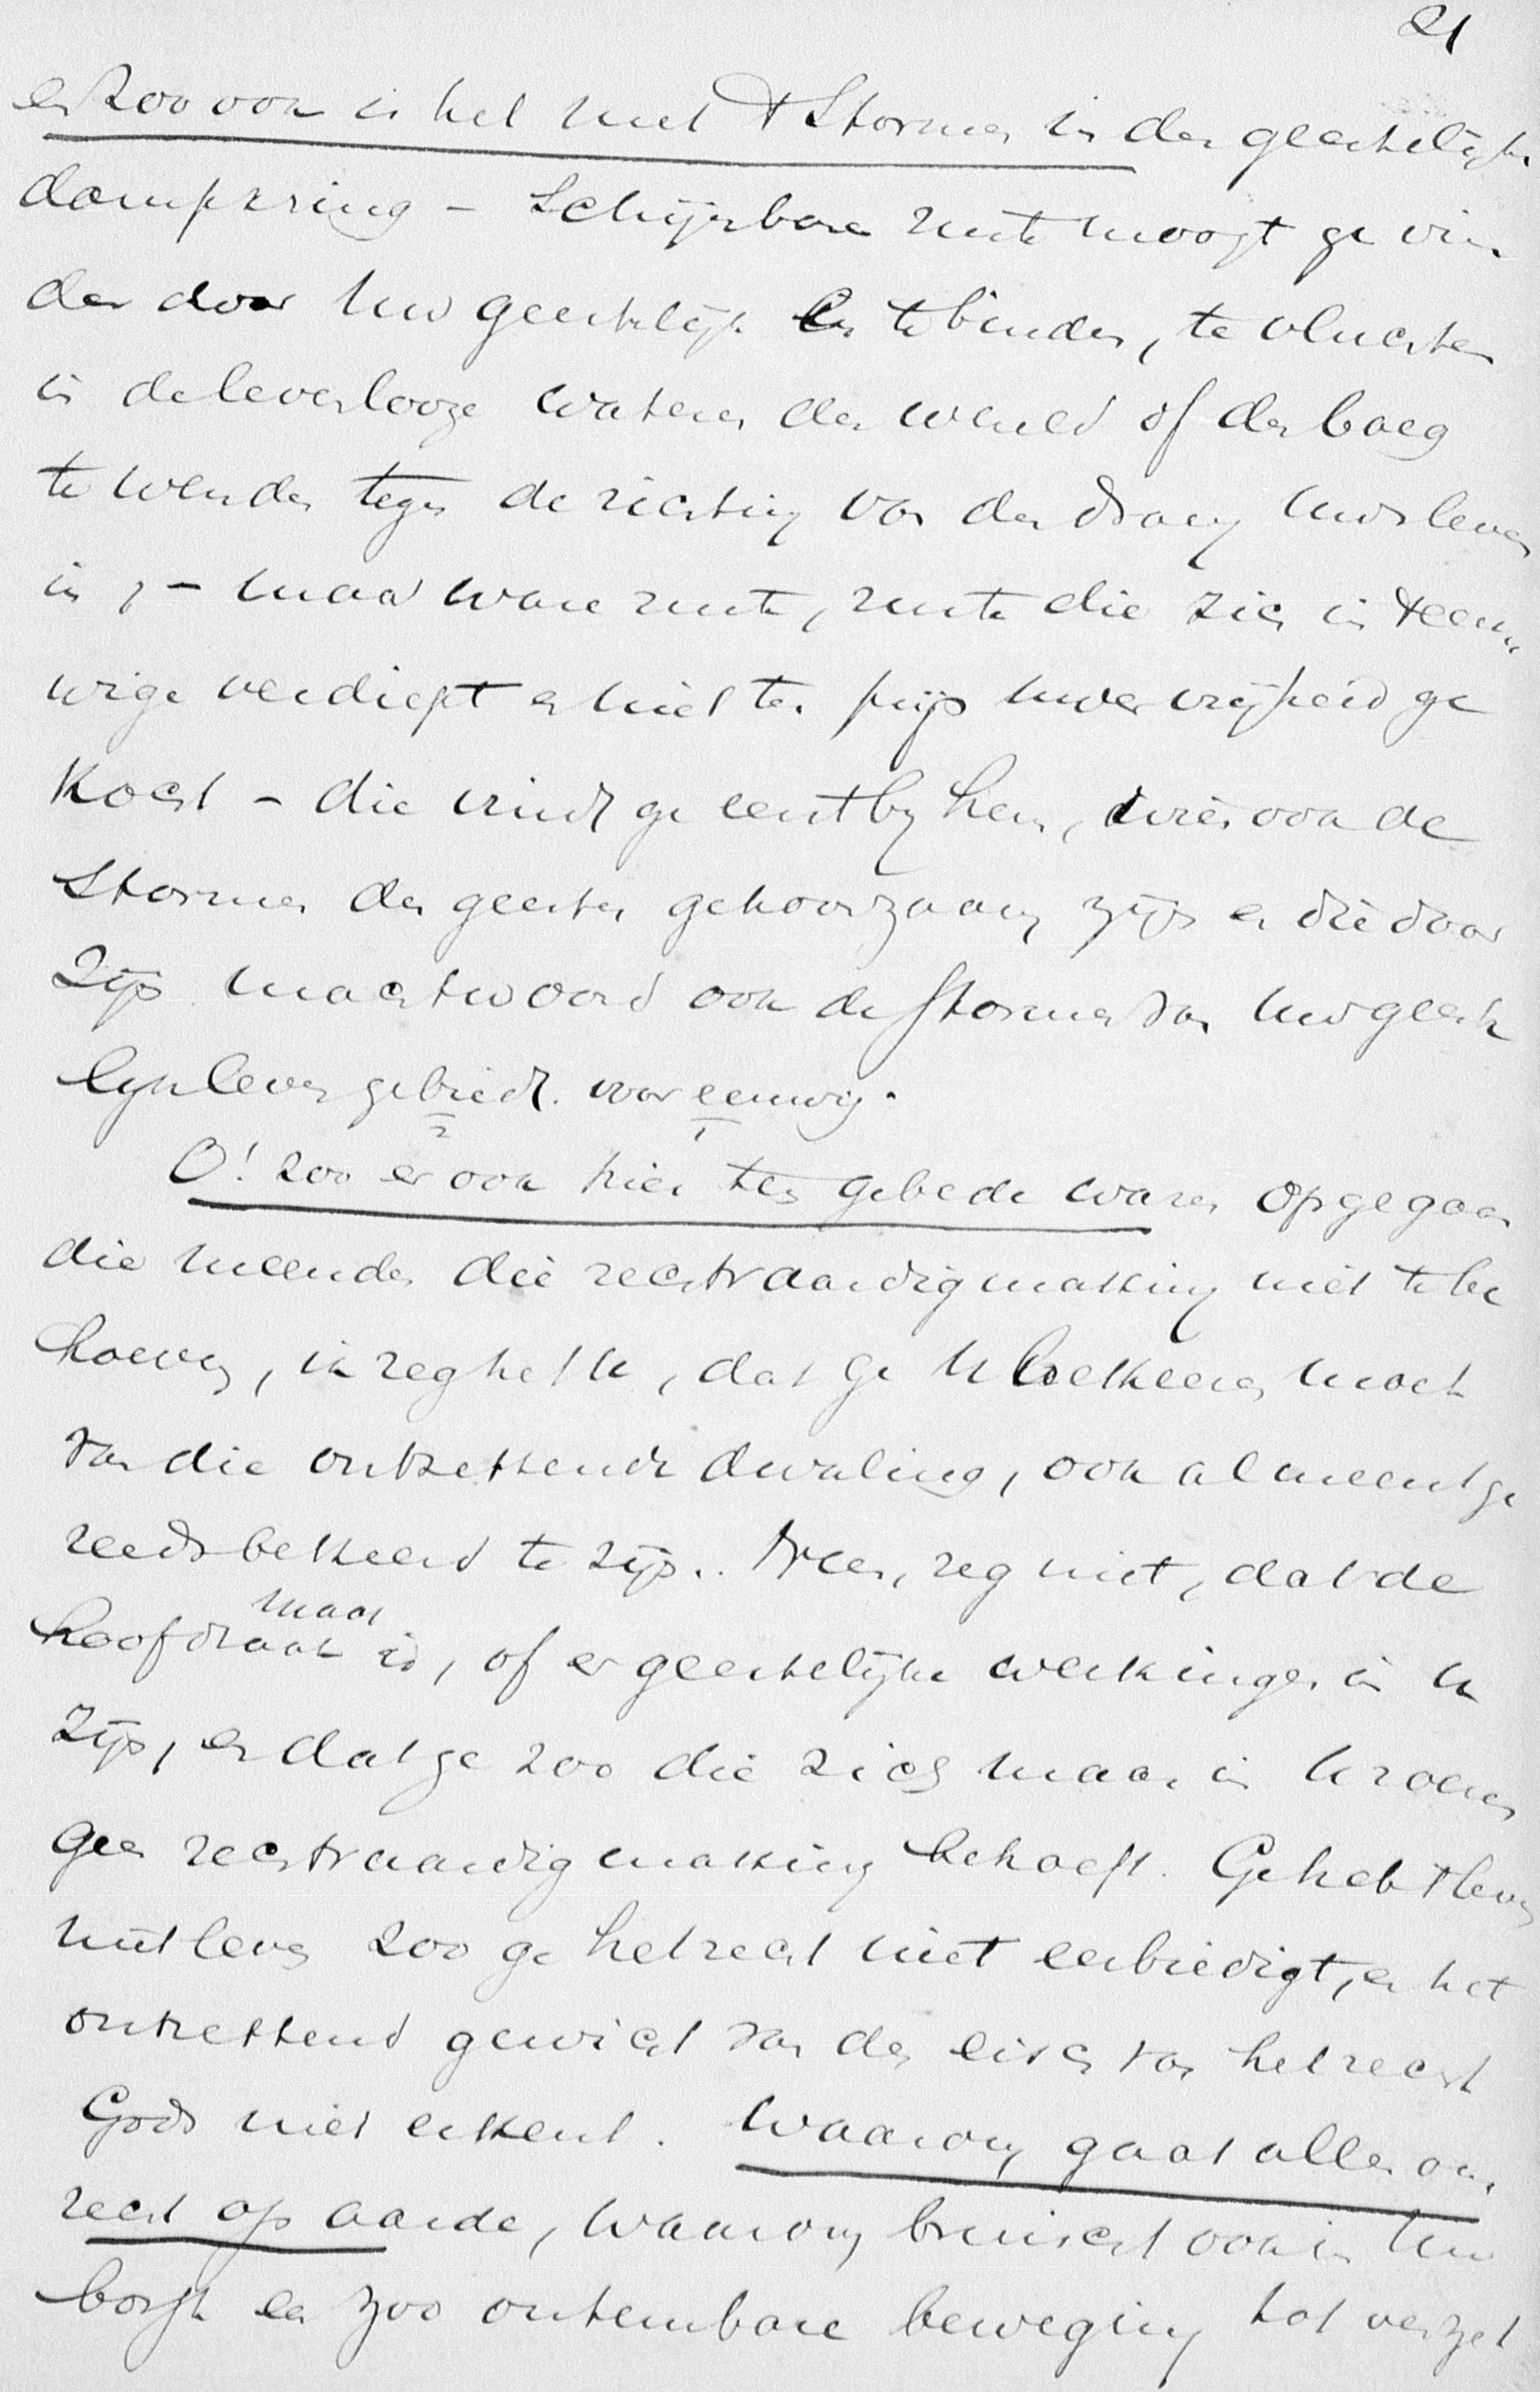 21
en zoo ook is het met 't stormen in den geestelijken
dampkring – Schijnbare rust moogt ge vin
den door uw geestelijk te binden, te vluchten
in de levenlooze wateren der wereld of den boeg
te wenden tegen de richting van den drang uws levens
in, – maar ware rust, rust die zich in 't eeuw
wige verdiept en niet ten prijs uwer vrijheid ge
kocht – die vindt ge eerst bij hem, wien ook de
stormen der geesten gehoorzaam zijn en die door
Zijn machtwoord ook de stormen van uw geeste
lijk leven gebiedt voor eeuwig.
2 1
O! zoo er ook hier ten gebede waren opgegaan
die meenden die rechtvaardigmaking niet te be
hoeven, ik zeg het u, dat ge u bekeeren moet
van die ontzettende dwaling, ook al meent ge
reeds bekeerd te zijn.. Neen, zeg niet, dat de
maar
hoofdzaak is, of er geestelijke werkingen in u
zijn, en dat ge zoo die zich maar in u roeren
geen rechtvaardigmaking behoeft. Ge hebt 't leven
niet lang zoo ge het recht niet eerbiedigt, en het
ontzettend gewicht van den eisch van het recht
Gods niet erkent. Waarom gaat alle on
recht op aarde, waarom bruischt ook in uw
borst een zoo ontembare beweging tot verzet